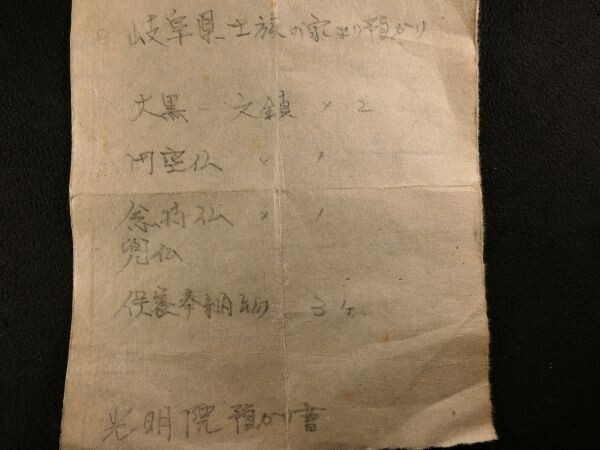 岐阜県士族の家より預かり
大黒 一 文鎮 × 2
円空仏 〃 〃
念持仏 × 1
兜仏
供養奉納物 3ヶ.
光明院預かり書